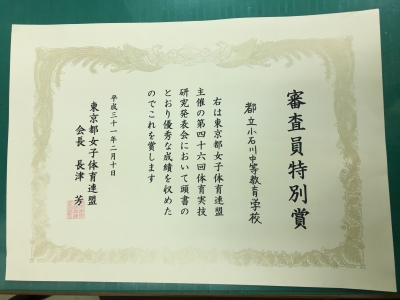 審査員特別賞
都立小石川中等教育学校
右は東京都女子体育連盟
主催の第四十六回体育実技
研究発表会において頭書の
とおり優秀な成績を収めた
のでこれを賞します
平成三十一年二月十日
東京都女子体育連盟
会長 長津 芳